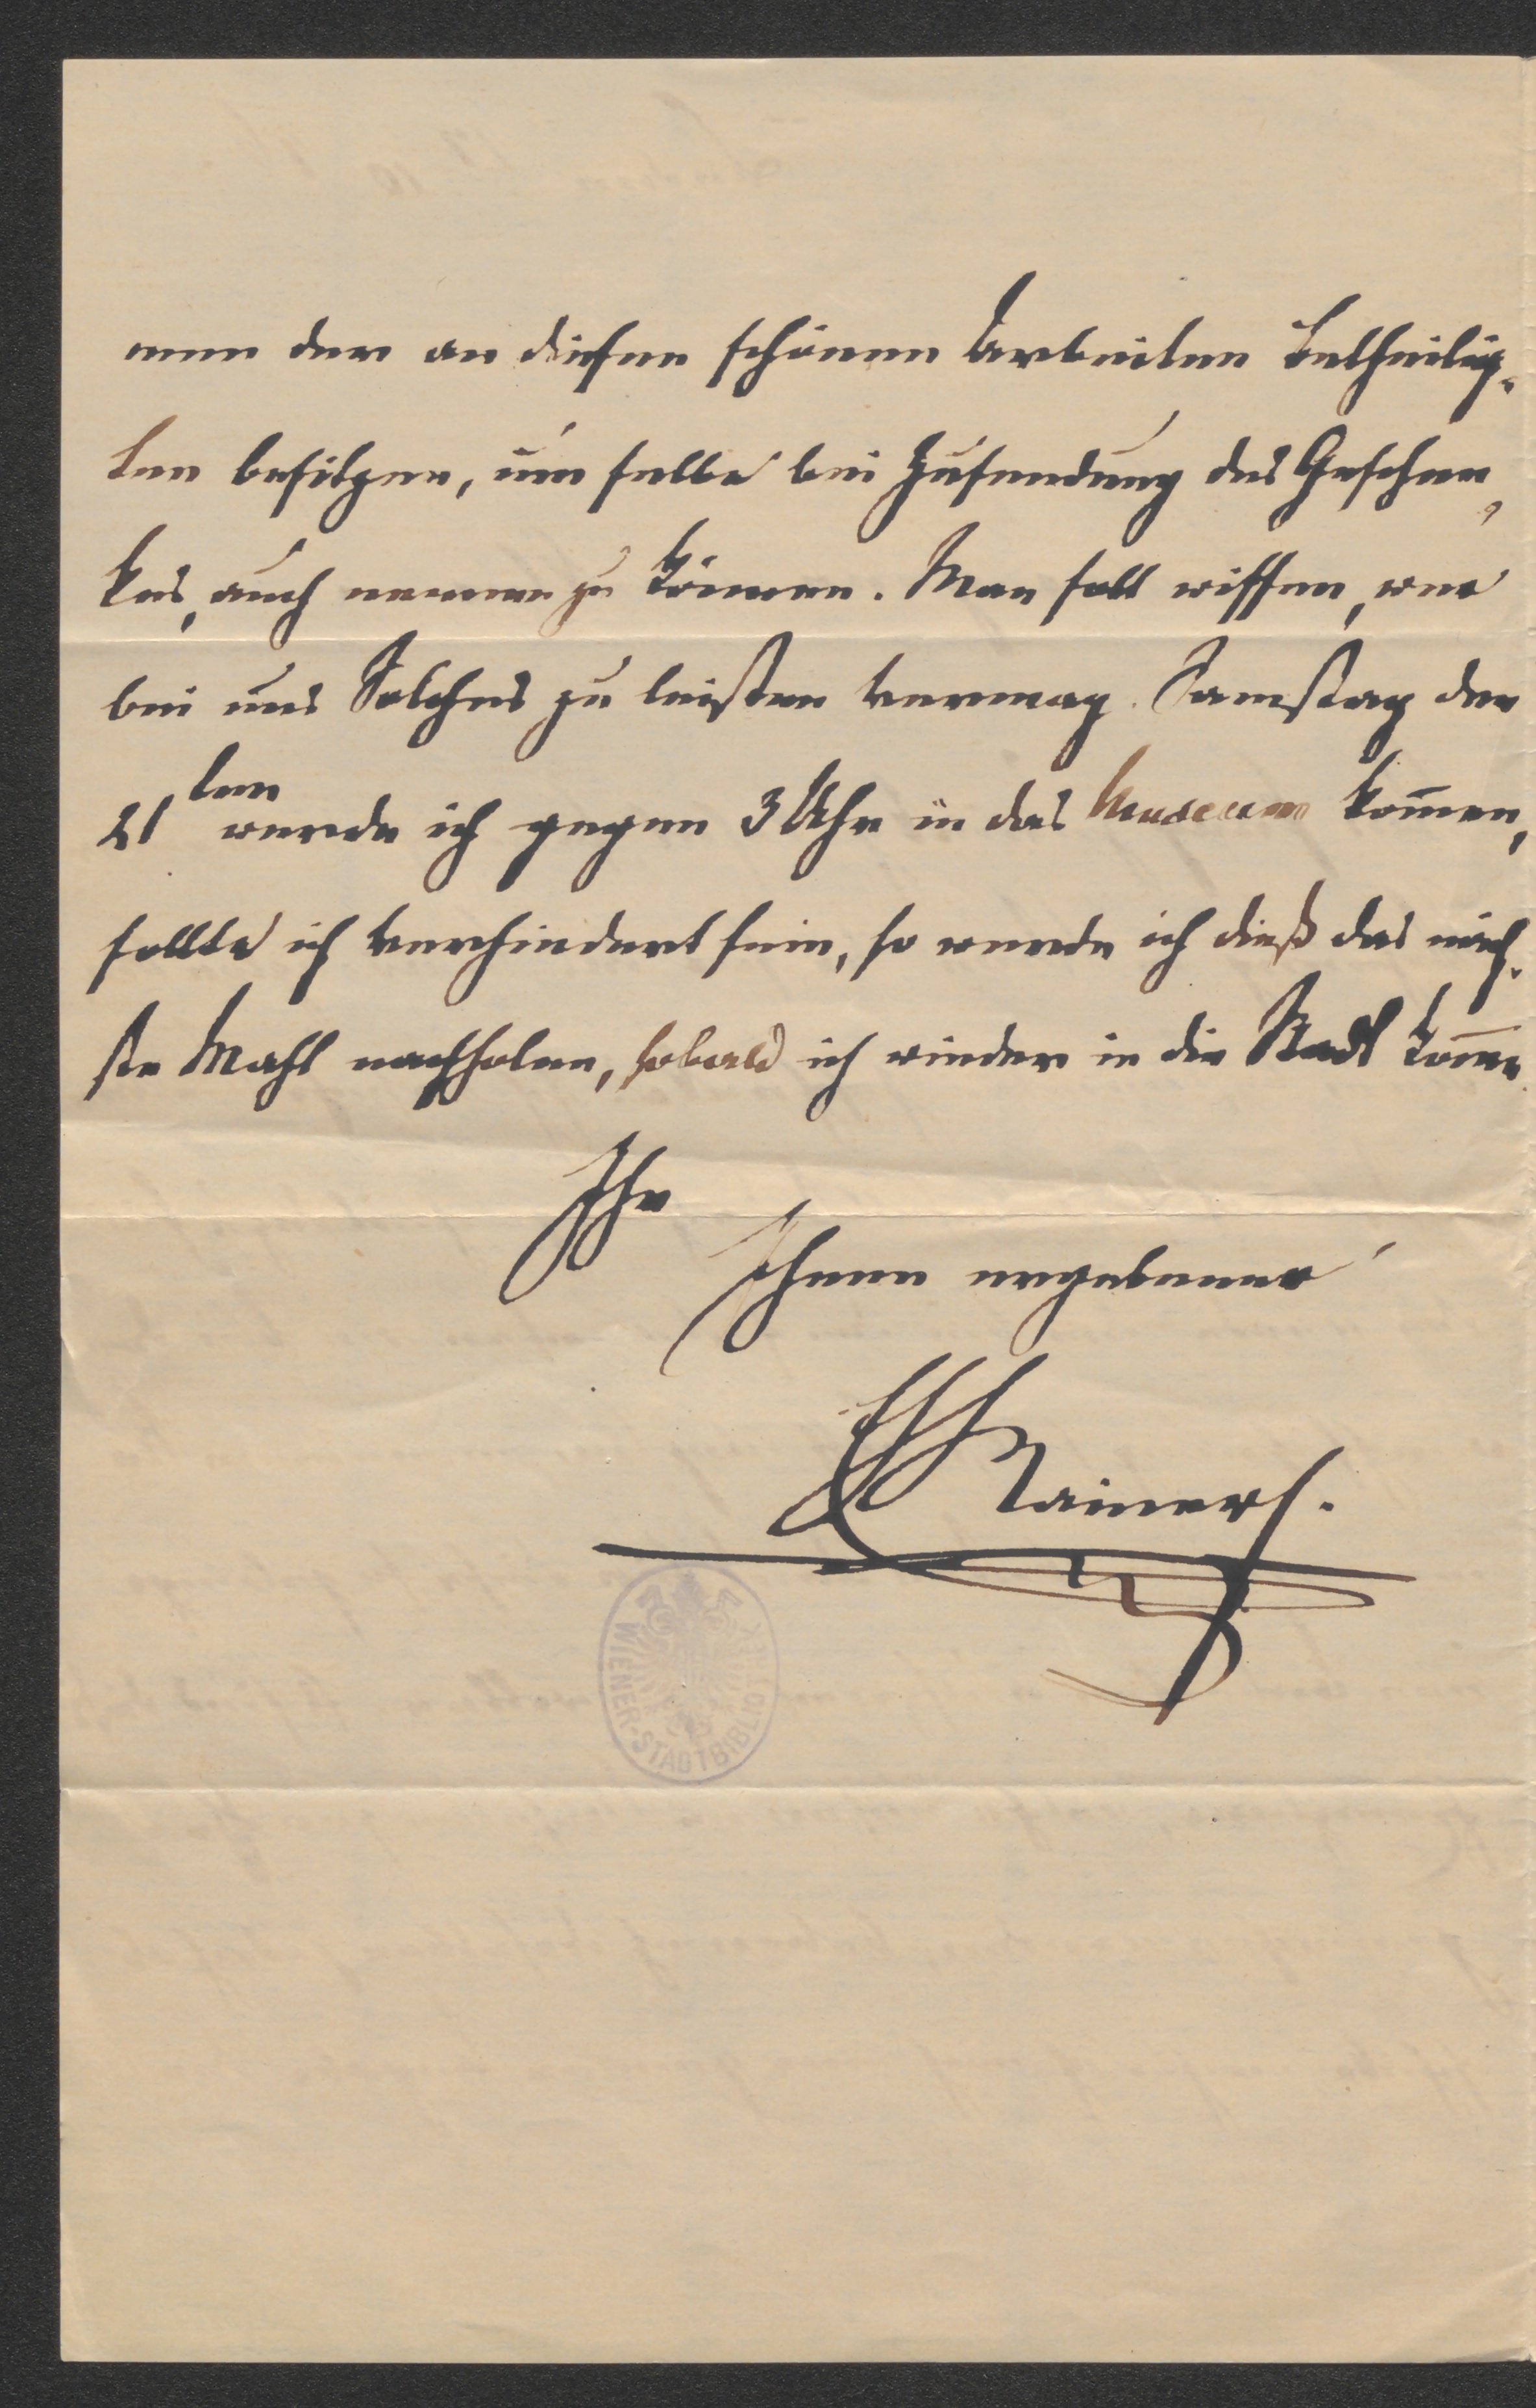 men der an diesen schönen Arbeiten Betheilig-
ten besitzen, um selbe bei Zusendung des Geschen-
kes, auch nennen zu können. Man soll wissen, wer
bei uns Solches zu leisten vermag. Samstag den
21ten werde ich gegen 3 Uhr in das Museum kom̅en,
sollte ich verhindert sein, so werde ich dieß das näch-
ste Mahl nachholen, sobald ich wieder in die Stadt kom̅e.
Ihr
Ihnen ergebener
EH Rainer
WIENER-STADTBIBLIOTHEK